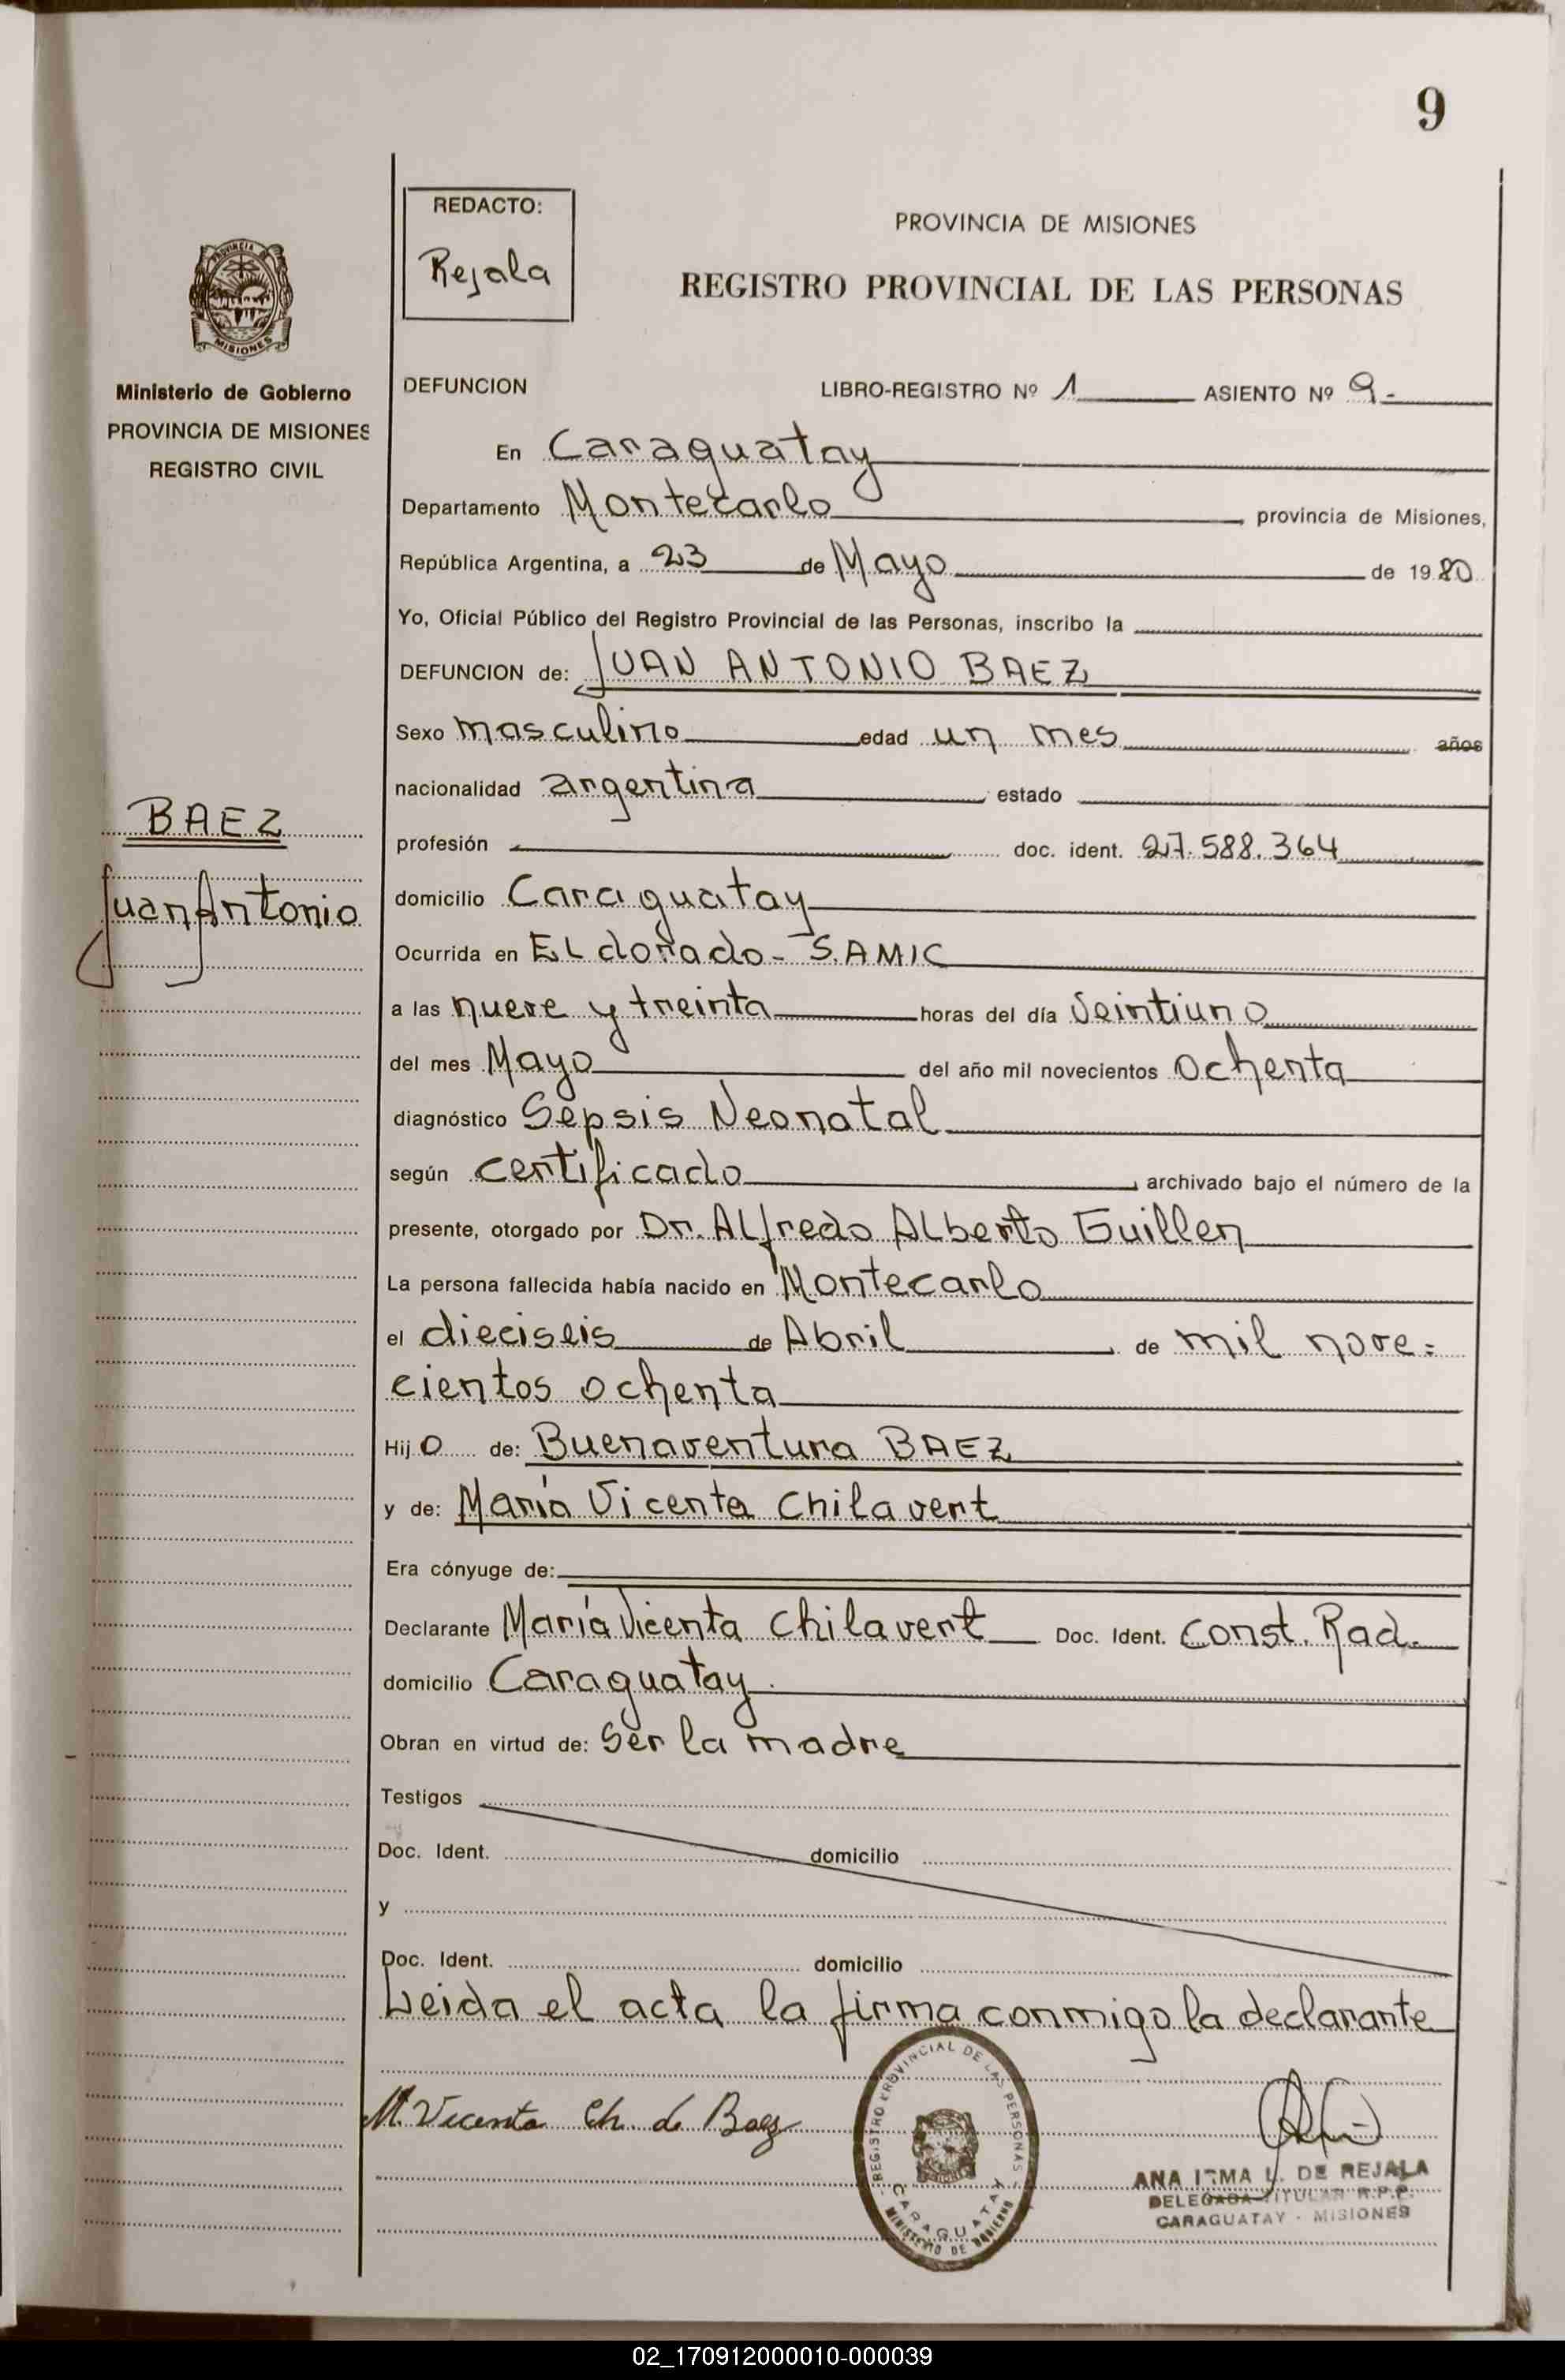 9
REDACTO:
Rejala
PROVINCIA DE MISIONES
REGISTRO PROVINCIAL DE LAS PERSONAS
PROVINCIA DE
MISIONES
Ministerio de Gobierno
PROVINCIA DE MISIONES
REGISTRO CIVIL
BAEZ
Juan Antonio
DEFUNCION LIBRO-REGISTRO Nº 1 ASIENTO Nº 9-
En Caraguatay
Departamento Montecarlo, provincia de Misiones,
República Argentina, a 23 de Mayo de 1980
Yo, Oficial Público del Registro Provincial de las Personas, inscribo la
DEFUNCION de: JUAN ANTONIO BAEZ
Sexo masculino edad un mes años
nacionalidad argentina estado
profesión doc. ident. 27.588.364
domicilio Caraguatay
Ocurrida en ELdorado - S.AMIC
a las nueve y treinta horas del día veintiuno
del mes Mayo del año mil novecientos ochenta
diagnóstico Sepsis Neonatal
según certificado, archivado bajo el número de la
presente, otorgado por Dr. ALfredo ALberto Guillen
La persona fallecida había nacido en Montecarlo
el dieciseis de Abril de mil nove=
cientos ochenta
Hijo de: Buenaventura BAEZ
y de: María Vicenta Chilavert
Era cónyuge de:
Declarante María Vicenta Chilavert Doc. Ident. Const. Rad.
domicilio Caraguatay.
Obran en virtud de: Ser la madre
Testigos
Doc. Ident. domicilio
y
Doc. Ident. domicilio
Leida el acta la firma conmigo la declarante
M. Vicenta Ch. de Baez
REGISTRO PROVINCIAL DE LAS PERSONAS
CARAGUATAY
MINISTERIO DE GOBIERNO
ANA IRMA L. DE REJALA
DELEGADA TITULAR R.P.P.
CARAGUATAY - MISIONES
02_170912000010-000039